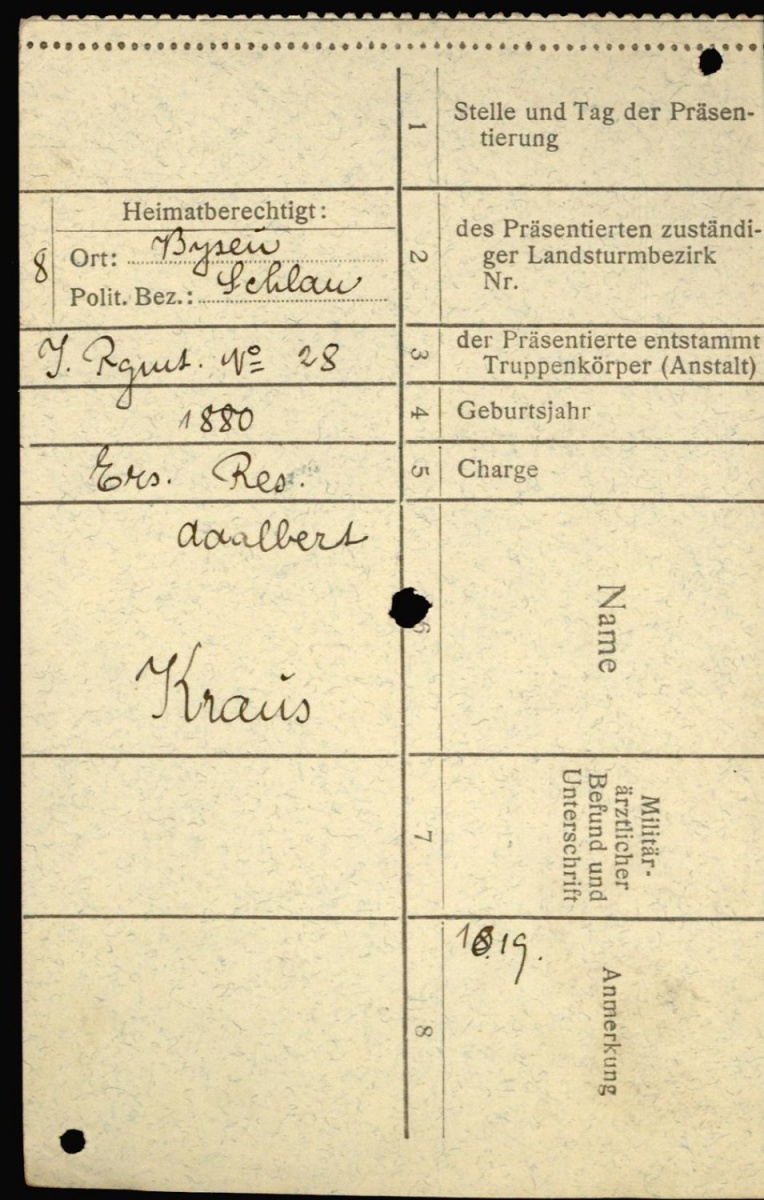 1
Stelle und Tag der Präsen-
tierung
Heimatberechtigt:
8
Ort: Byseň
Polit. Bez.: Schlan
2
des Präsentierten zuständi-
ger Landsturmbezirk
Nr.
J. Rgmt. Nº 28
3
der Präsentierte entstammt
Truppenkörper (Anstalt)
1880
4
Geburtsjahr
Ers. Res.
5
Charge
Adalbert
Kraus
6
Name
7
Militär-
ärztlicher
Befund und
Unterschrift
8
Anmerkung